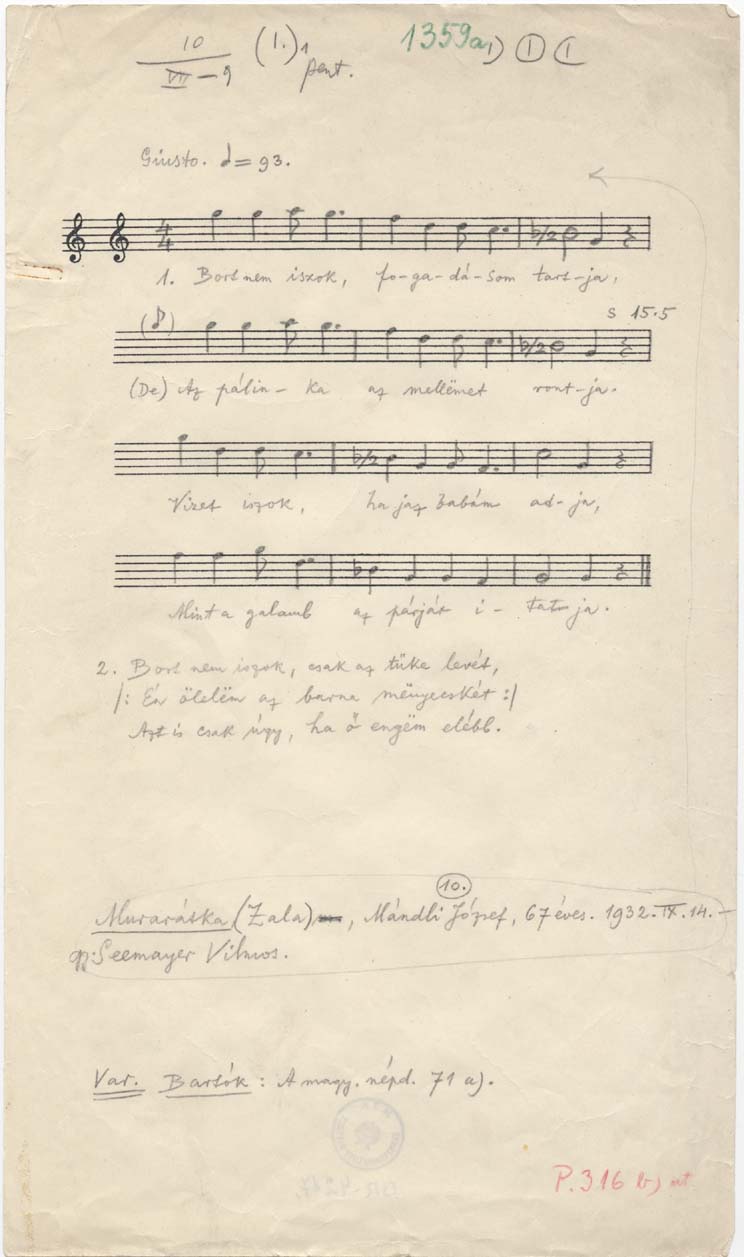 10 (1.) 1 1359a₁) 1 1
VII – 9 pent.
Giusto. = 93.
4
4
1. Bort nem iszok, fo-ga-dá-som tart-ja,
s 15.5
(De) Az pálin-ka az mellëmet ront-ja.
Vizet iszok, ha jaz babám ad-ja,
Mint a galamb az párját i-tat-ja.
2. Bort nem iszok, csak az tüke levét,
/: Én ölelëm az barna mënyecskét :/
Azt is csak úgy, ha ő engëm elébb.
10.
Murarátka (Zala), Mándli József, 67 éves. 1932. IX. 14. –
gy: Seemayer Vilmos.
Var. Bartók: A magy. népd. 71 a).
P. 316 b)